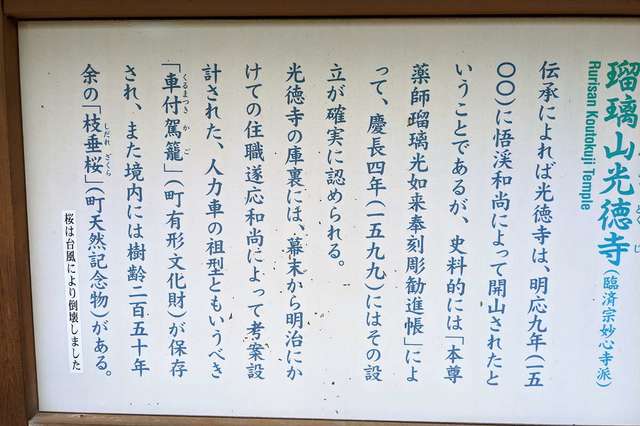 瑠璃山光徳寺(臨済宗妙心寺派)
Rurisan Koutokuji Temple
伝承によれば光徳寺は、明応九年(一五
〇〇)に悟渓和尚によって開山されたと
いうことであるが、史料的には「本尊
薬師瑠璃光如来奉刻彫勧進帳」によ
って、慶長四年(一五九九)にはその設
立が確実に認められる。
光徳寺の庫裏には、幕末から明治にか
けての住職遂応和尚によって考案設
計された、人力車の祖型ともいうべき
「車付駕籠」(町有形文化財)が保存
くるまつきかご
され、また境内には樹齢二百五十年
余の「枝垂桜」(町天然記念物)がある。
しだれざくら
桜は台風により倒壊しました